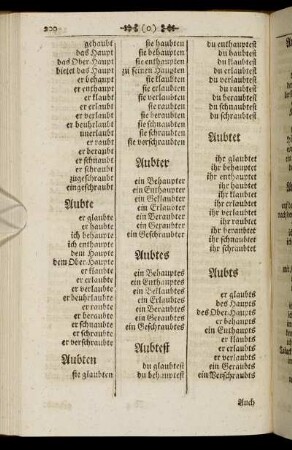 200 (o)
gehaubt
das Haupt
das Ober-Haupt
bietet das Haupt
er behaupt
er enthaupt
er klaubt
er erlaubt
er verlaubt
er beuhrlaubt
unerlaubt
er raubt
er beraubt
er schnaubt
er schraubt
zugeschraubt
eingeschraubt
Aubte
er glaubte
er haubte
ich behaupte
ich enthaupte
dem Haupte
dem Ober-Haupte
er klaubte
er erlaubte
er verlaubte
er beuhrlaubte
er raubte
er beraubte
er schnaubte
er schraubte
er verschraubte
Aubten
sie glaubten
sie haubten
sie behaupten
sie enthaupten
zu seinen Haupten
sie klaubten
sie erlaubten
sie verlaubten
sie raubten
sie beraubten
sie schnaubten
sie schraubten
sie vorschraubten
Aubter
ein Behaupter
ein Enthaupter
ein Geklaubter
ein Erlaubter
ein Beraubter
ein Geraubter
ein Geschraubter
Aubtes
ein Behauptes
ein Enthauptes
ein Erlaubtes
ein Beraubtes
ein Geraubtes
ein Geschraubtes
Aubtest
du glaubtest
du behauptest
du enthauptest
du haubtest
du klaubtest
du erlaubtest
du verlaubtest
du raubtest
du beraubtest
du schnaubtest
du schraubtest
Aubtet
ihr glaubtet
ihr behauptet
ihr enthauptet
ihr haubtet
ihr klaubtet
ihr erlaubtet
ihr verlaubtet
ihr raubtet
ihr beraubtet
ihr schnaubtet
ihr schraubtet
Aubts
er glaubts
des Haupts
des Ober-Haupts
er behaupts
ein Enthaupts
er klaubts
er erlaubts
er verlaubts
er raubts
ein Geraubts
ein Verschraubts
Auch